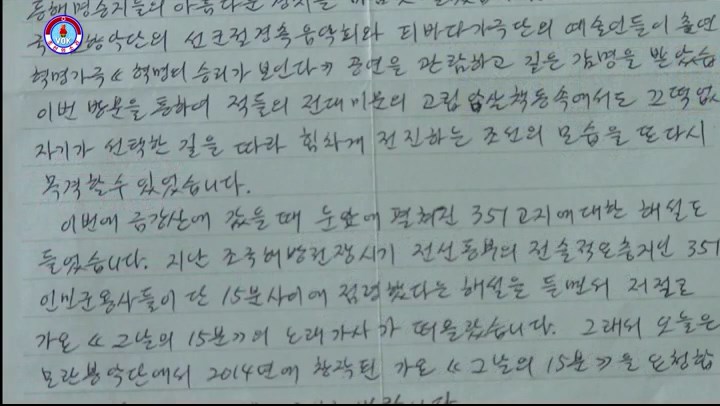 동해명승지들의 아름다운
향악단의 선군절경축음악회와 피바다가극단의 예술인들이 출연
혁명가극 《혁명의 승리가 보인다》 공연을 관람하고 깊은 감명을 받았습
이번 방문을 통하여 적들의 전대미문의 고립압살책동속에서도 끄떡없
자기가 선택한 길을 따라 힘차게 전진하는 조선의 모습을 또다시
목격할수 있었습니다.
이번에 금강산에 갔을 때 눈앞에 펼쳐진 351고지에 대한 해설도
들었습니다. 지난 조국해방전쟁시기 전선동부의 전술적요충지인 351
인민군용사들이 단 15분사이에 점령했다는 해설을 들으면서 저절로
가요 《그날의 15분》의 노래가사가 떠올랐습니다. 그래서 오늘은
모란봉악단에서 2014년에 창작된 가요 《그날의 15분》을 요청합